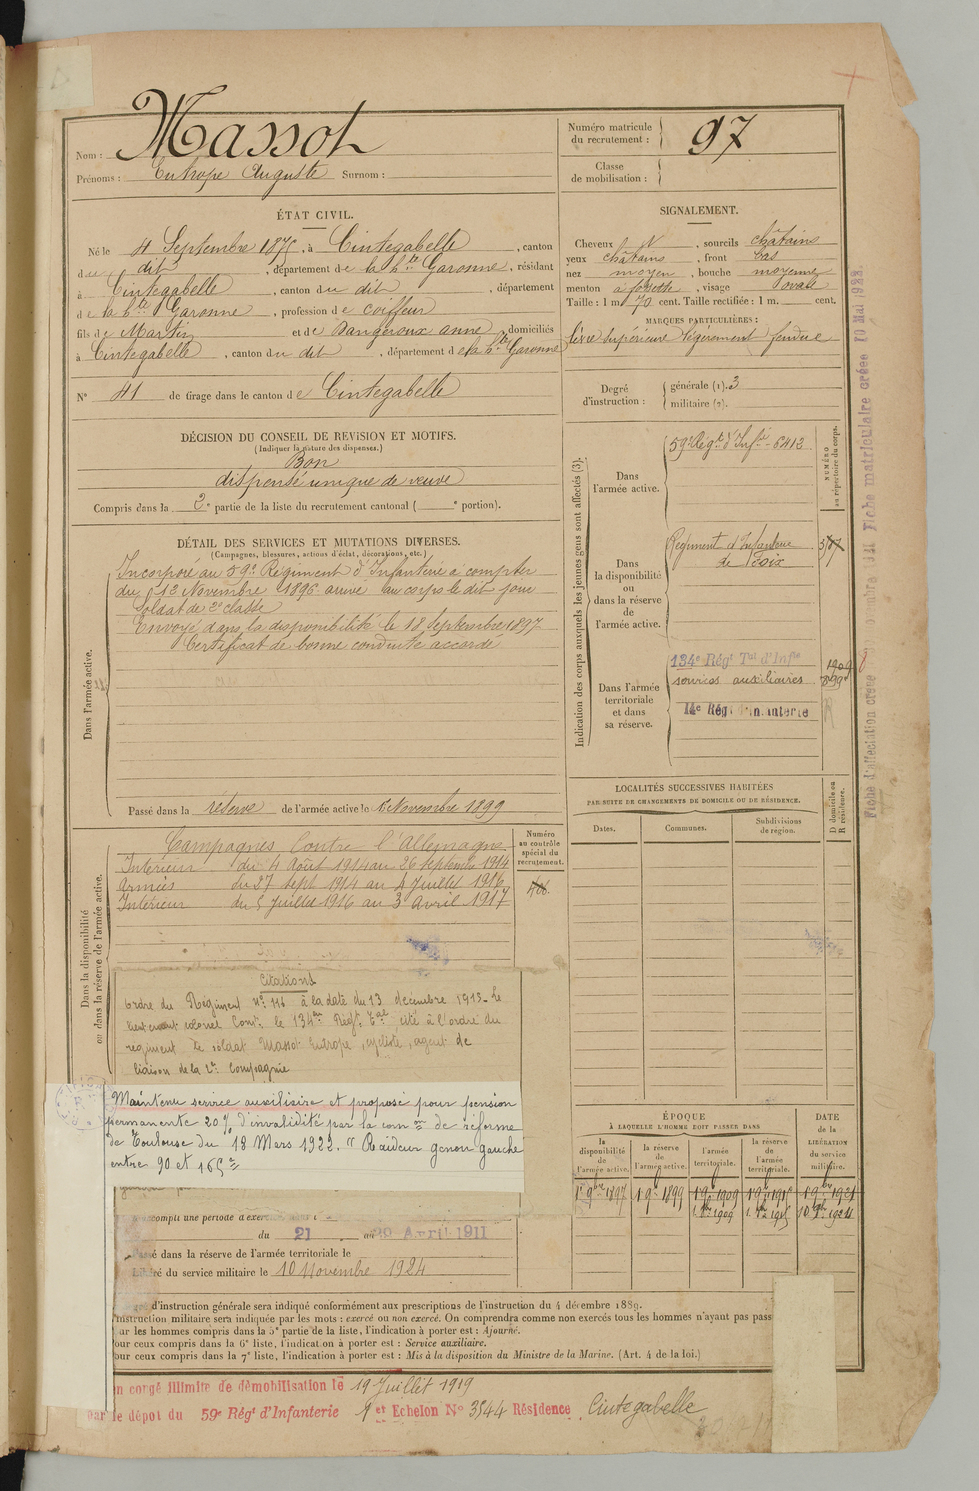 Nom : Massot
Prénoms : Eutrope Auguste Surnom :
Numéro matricule du recrutement : 97
Classe de mobilisation :
ÉTAT CIVIL.
Né le 4 Septembre 1875, à Cintegabelle, canton
du dit, département de la hte Garonne, résidant
à Cintegabelle, canton du dit, département
de la hte Garonne, profession de coiffeur
fils de Martin et de Dangeroux anne, domiciliés
à Cintegabelle, canton du dit, département de la hte Garonne
N° 41 de tirage dans le canton de Cintegabelle
SIGNALEMENT.
Cheveux N, sourcils châtains
yeux châtains, front bas
nez moyen, bouche moyenne
menton à fossette, visage ovale
Taille : 1 m. 70 cent. Taille rectifiée : 1 m. cent.
MARQUES PARTICULIÈRES :
lèvre supérieure légèrement fendue
Degré d'instruction : générale (1). 3
militaire (2).
DÉCISION DU CONSEIL DE REVISION ET MOTIFS.
(Indiquer la nature des dispenses.)
Bon
dispensé unique de veuve
Compris dans la 2e partie de la liste du recrutement cantonal ( e portion).
DÉTAIL DES SERVICES ET MUTATIONS DIVERSES.
(Campagnes, blessures, actions d'éclat, décorations, etc.)
Dans l'armée active.
Incorporé au 59e Régiment d'Infanterie à compter
du 12 Novembre 1896 arrivé au corps le dit jour
Soldat de 2e classe
Envoyé dans la disponibilité le 18 Septembre 1897
Certificat de bonne conduite accordé
Passé dans la réserve de l'armée active le 1 Novembre 1899
Indication des corps auxquels les jeunes gens sont affectés (3).
NUMÉRO au répertoire du corps.
Dans l'armée active.
59e Régt d'Infie 6412
Dans la disponibilité ou dans la réserve de l'armée active.
Régiment d'Infanterie
de Foix
Dans l'armée territoriale et dans sa réserve.
134e Régt Tal d'Infie
services auxiliaires
14e Régt d'Infanterie
LOCALITÉS SUCCESSIVES HABITÉES
PAR SUITE DE CHANGEMENTS DE DOMICILE OU DE RÉSIDENCE.
D domicile ou R résidence.
Dates. Communes. Subdivisions de région.
Dans la disponibilité ou dans la réserve de l'armée active.
Numéro au contrôle spécial du recrutement.
Campagnes Contre l'Allemagne
Intérieur du 4 Août 1914 au 26 Septembre 1914
Armées du 27 sept 1914 au 4 Juillet 1916
Intérieur du 5 Juillet 1916 au 3 Avril 1917
Citations
ordre du Régiment N° 116 à la date du 13 décembre 1915. Le
lieutenant colonel Comt le 134me Régt Tal cite à l'ordre du
régiment le soldat Massot Eutrope, cycliste, agent de
liaison de la 2e Compagnie
Maintenu service auxiliaire et proposé pour pension
permanente 20% d'invalidité par la comon de réforme
de Toulouse du 18 Mars 1922. Raideur genou gauche
entre 90 et 165°
accompli une période d'exercices dans l
du 21 au Avril 1911
Passé dans la réserve de l'armée territoriale le
Libéré du service militaire le 10 Novembre 1924
ÉPOQUE
À LAQUELLE L'HOMME DOIT PASSER DANS
la disponibilité de l'armée active. la réserve de l'armée active. l'armée territoriale. la réserve de l'armée territoriale.
DATE de la LIBÉRATION du service militaire.
1er 9bre 1897 1 9e 1899 1 9e 1909 1 9e 1915 1 9bre 1921
d'instruction générale sera indiqué conformément aux prescriptions de l'instruction du 4 décembre 1889.
instruction militaire sera indiquée par les mots : exercé ou non exercé. On comprendra comme non exercés tous les hommes n'ayant pas pass
our les hommes compris dans la 5e partie de la liste, l'indication à porter est : Ajourné.
our ceux compris dans la 6e liste, l'indication à porter est : Service auxiliaire.
our ceux compris dans la 7e liste, l'indication à porter est : Mis à la disposition du Ministre de la Marine. (Art. 4 de la loi.)
n congé illimité de démobilisation le 19 Juillet 1919
par le dépôt du 59e Régt d'Infanterie 1er Echelon No 3544 Résidence Cintegabelle
Fiche matriculaire créée 10 Mai 1922.